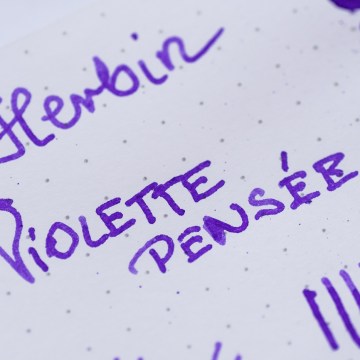 Herbin
VIOLETTE
PENSÉE